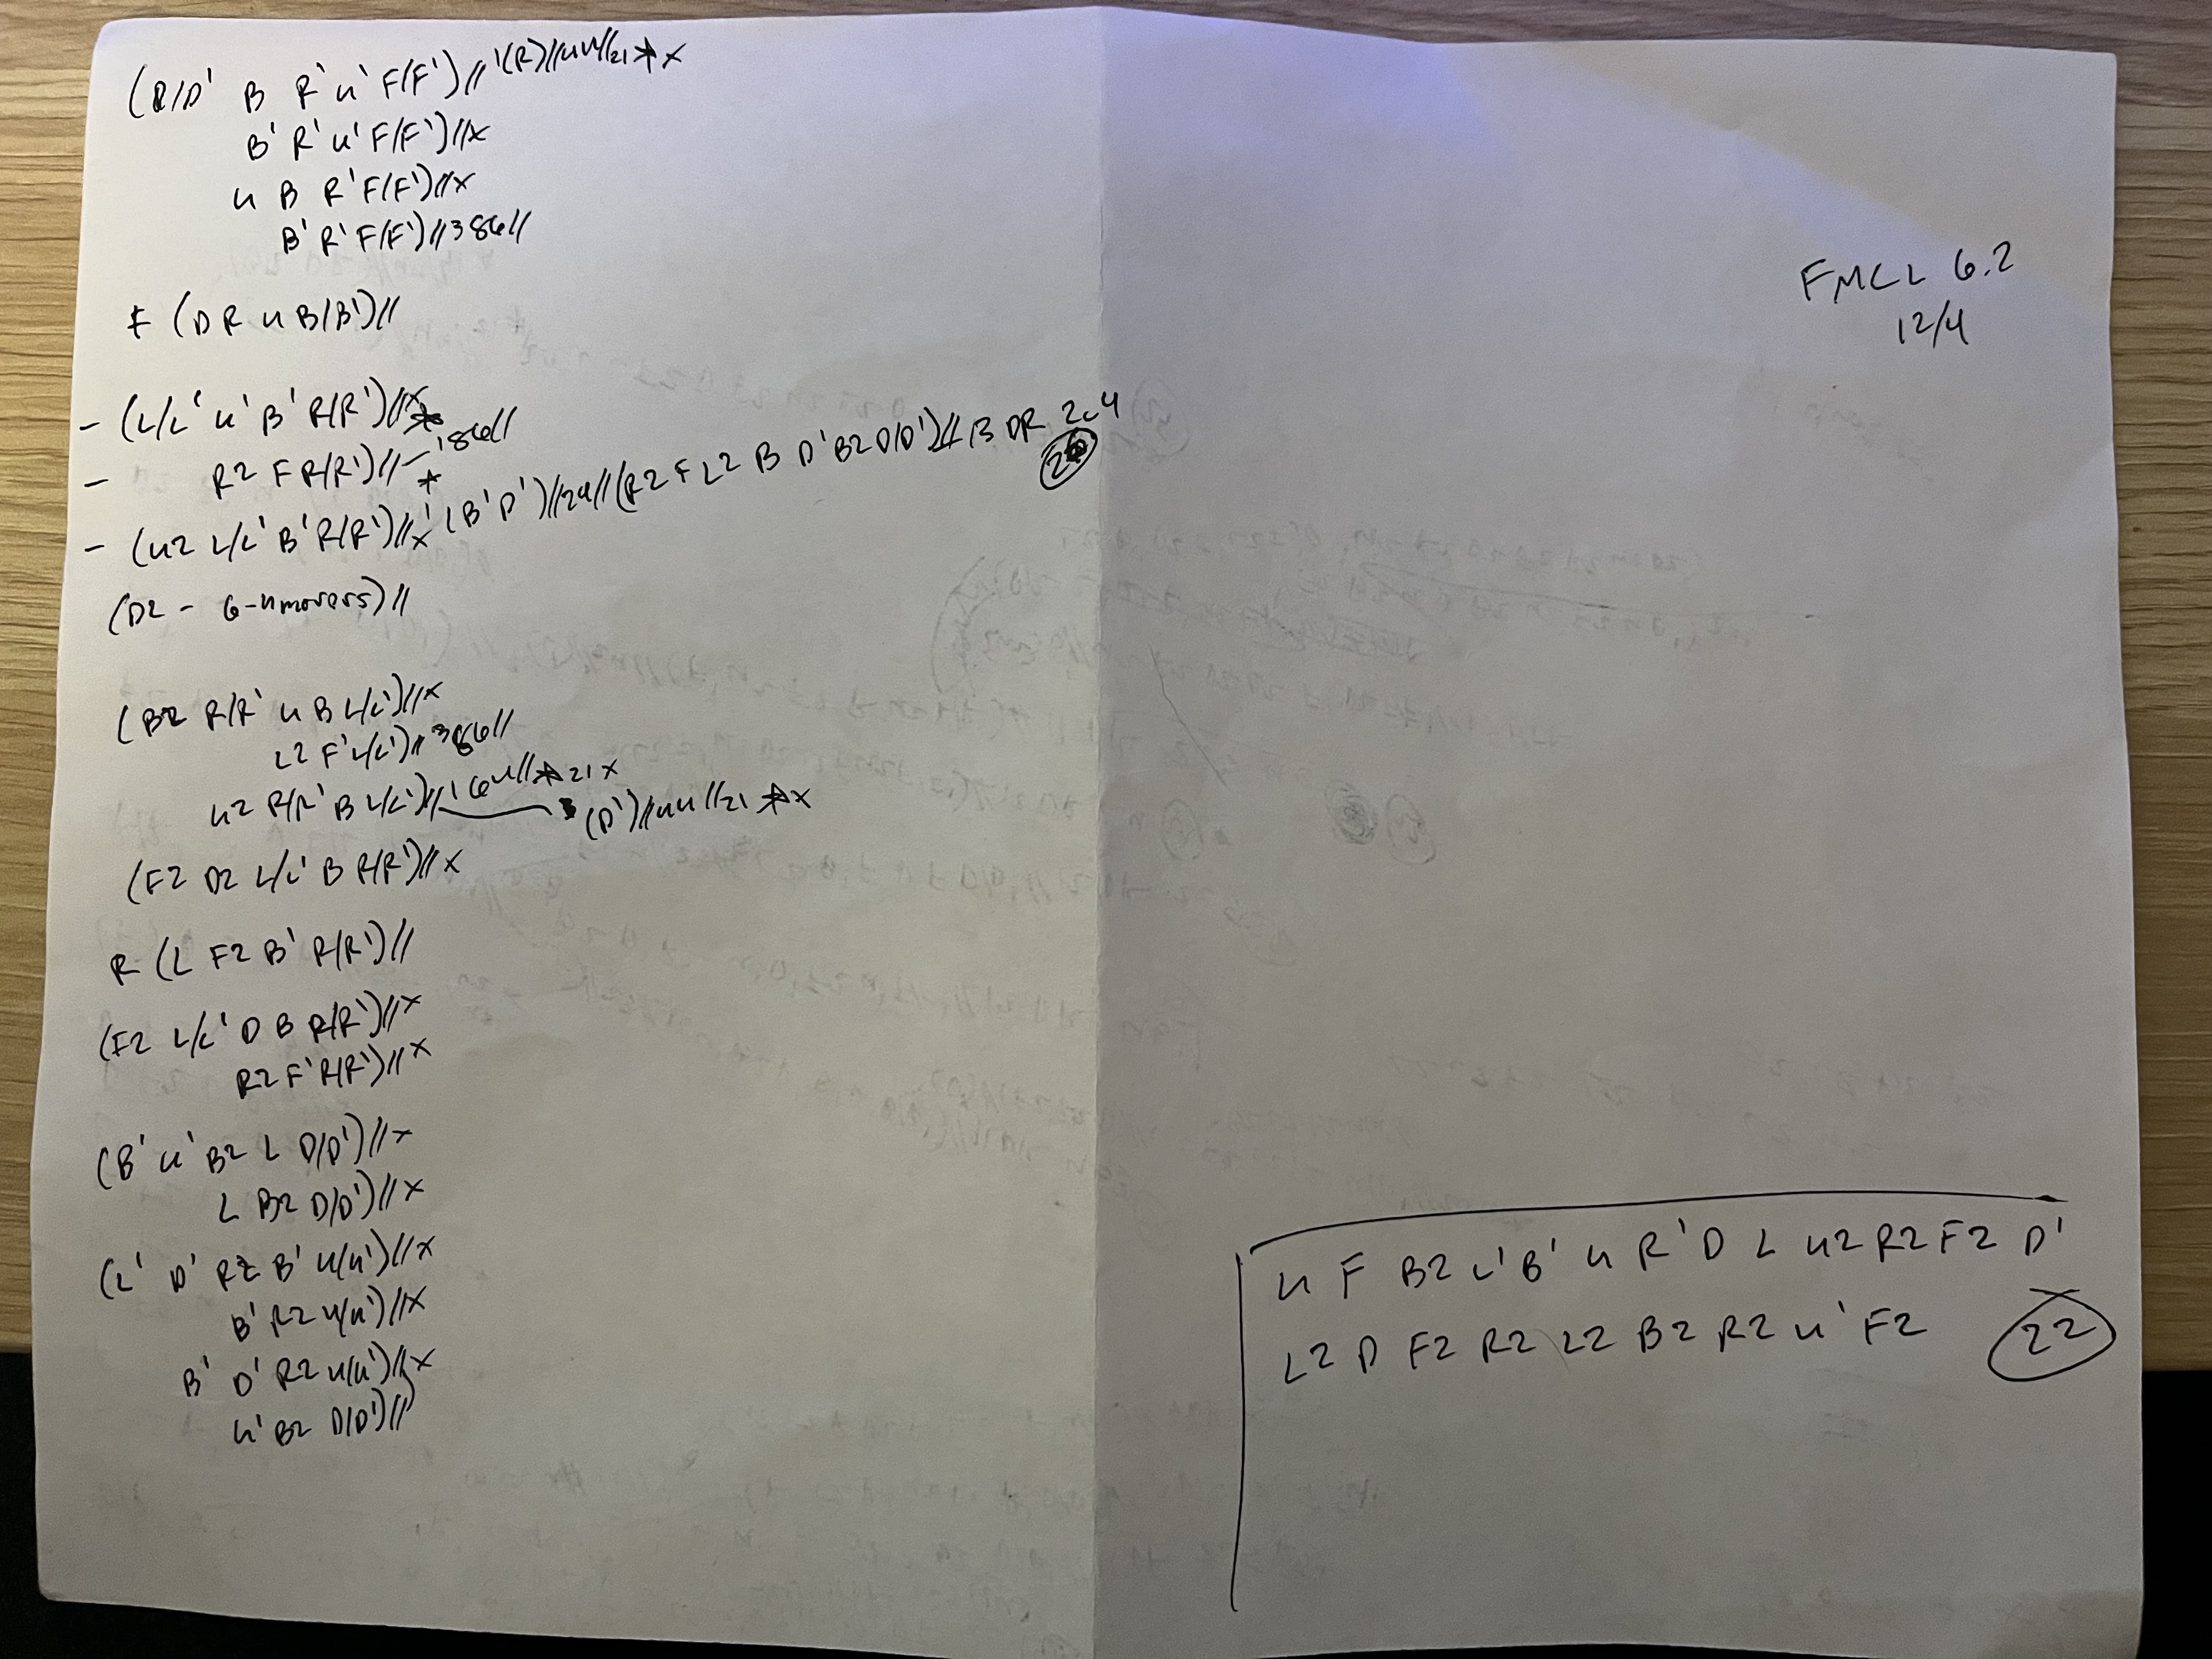 (R/D' B R' u' F/F')//'(R)//4u//21*x
B' R' u' F/F')//x
u B R' F/F')//x
B' R' F/F')//386//
F (D R u B/B')//
- (L/L' u' B' R/R')//x
- R2 F R/R')//-186//
*
- (u2 L/L' B' R/R')//x' (B'D')//24//(R2 F L2 B D' B2 D/D')//13 DR 2c4
26
(D2 - 6-4movers)//
(B2 R/R' u B L/L')//x
L2 F' L/L')//386//
u2 R/R' B L/L')//
(D')//4u//21 *x
(F2 D2 L/L' B R/R')//x
R (L F2 B' R/R')//
(F2 L/L' D B R/R')//x
R2 F' R/R')//x
(B' u' B2 L D/D')//x
L B2 D/D')//x
(L' D' R2 B' u/u')//x
B' R2 u/u')//x
B' D' R2 u/u')//x
u' B2 D/D')//
FMCL 6.2
12/4
u F B2 L' B' u R' D L u2 R2 F2 D'
L2 D F2 R2 L2 B2 R2 u' F2 22